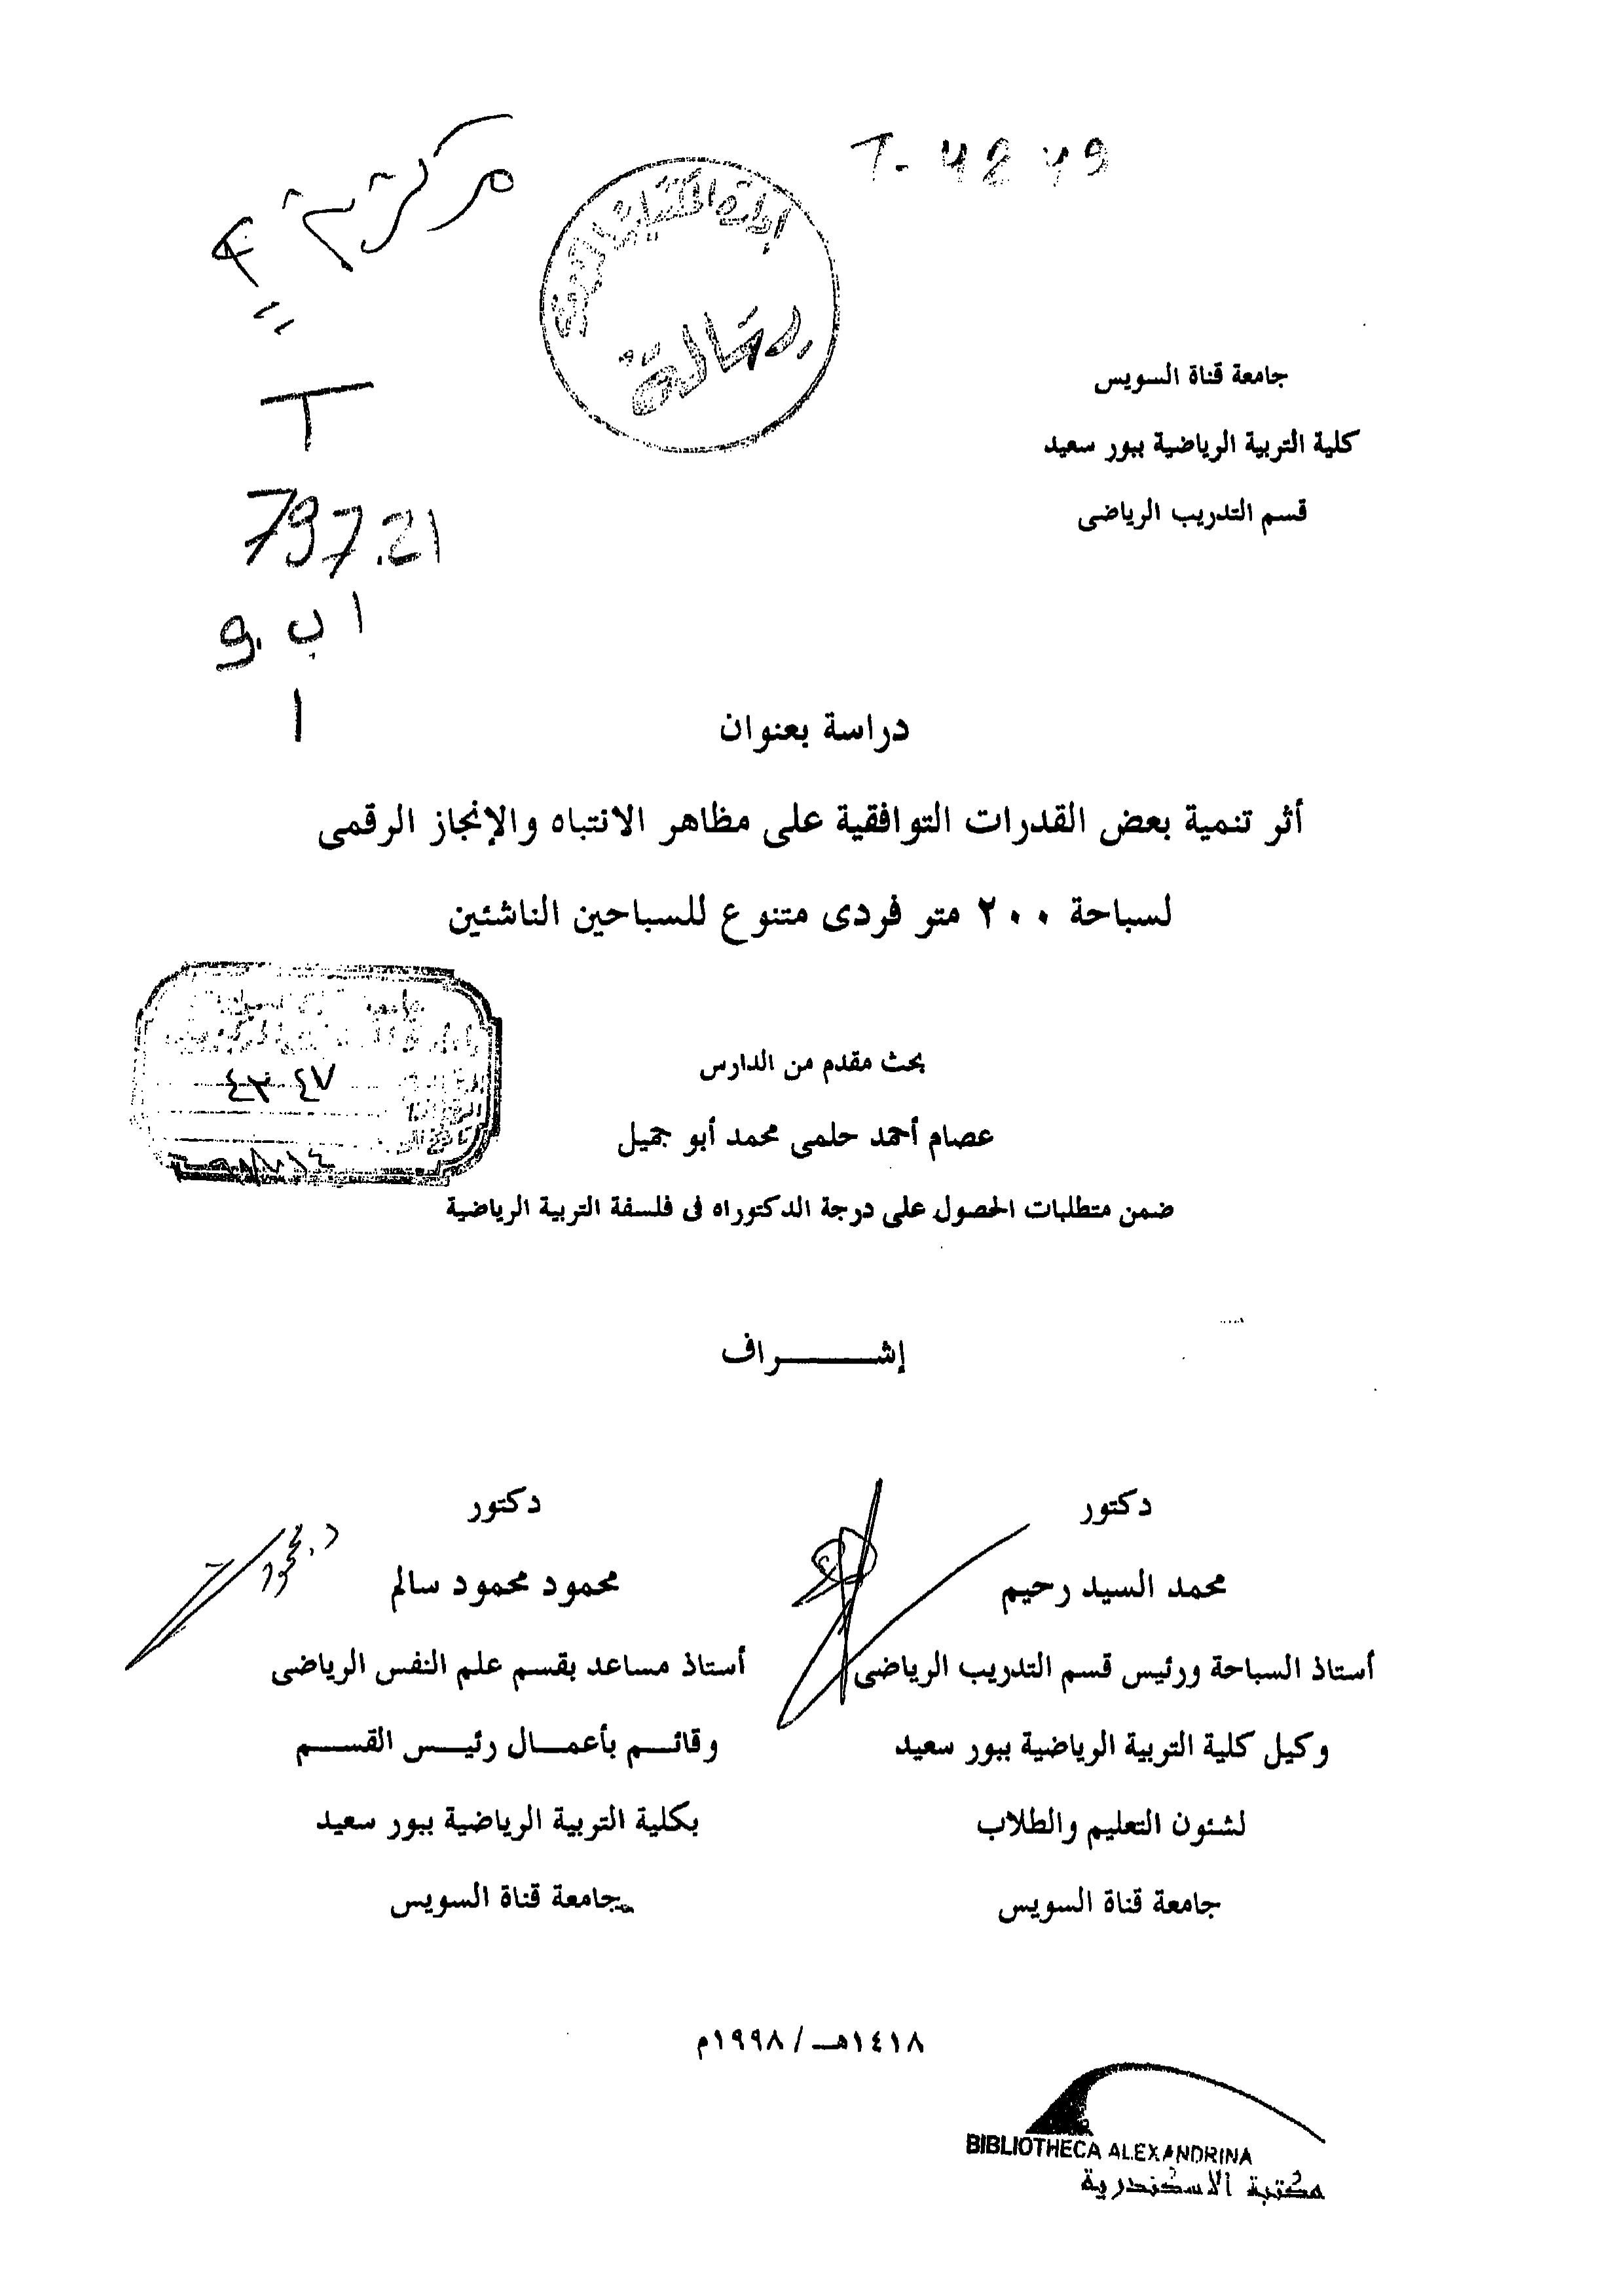 T- 4279
مركزية
رسالة
T
797.21
ا ب. و
ا
جامعة قناة السويس
كلية التربية الرياضية ببور سعيد
قسم التدريب الرياضى
دراسة بعنوان
أثر تنمية بعض القدرات التوافقية على مظاهر الانتباه والإنجاز الرقمى
لسباحة ٢٠٠ متر فردى متنوع للسباحين الناشئين
بحث مقدم من الدارس
عصام أحمد حلمى محمد أبو جميل
ضمن متطلبات الحصول على درجة الدكتوراه فى فلسفة التربية الرياضية
إشــــــراف
دكتور
محمد السيد رحيم
أستاذ السباحة ورئيس قسم التدريب الرياضى
وكيل كلية التربية الرياضية ببور سعيد
لشئون التعليم والطلاب
جامعة قناة السويس
دكتور
محمود محمود سالم
أستاذ مساعد بقسم علم النفس الرياضى
وقائــم بأعمــال رئيــس القســم
بكلية التربية الرياضية ببور سعيد
جامعة قناة السويس
١٤١٨هـ / ١٩٩٨م
BIBLIOTHECA ALEXANDRINA
مكتبة الاسكندرية